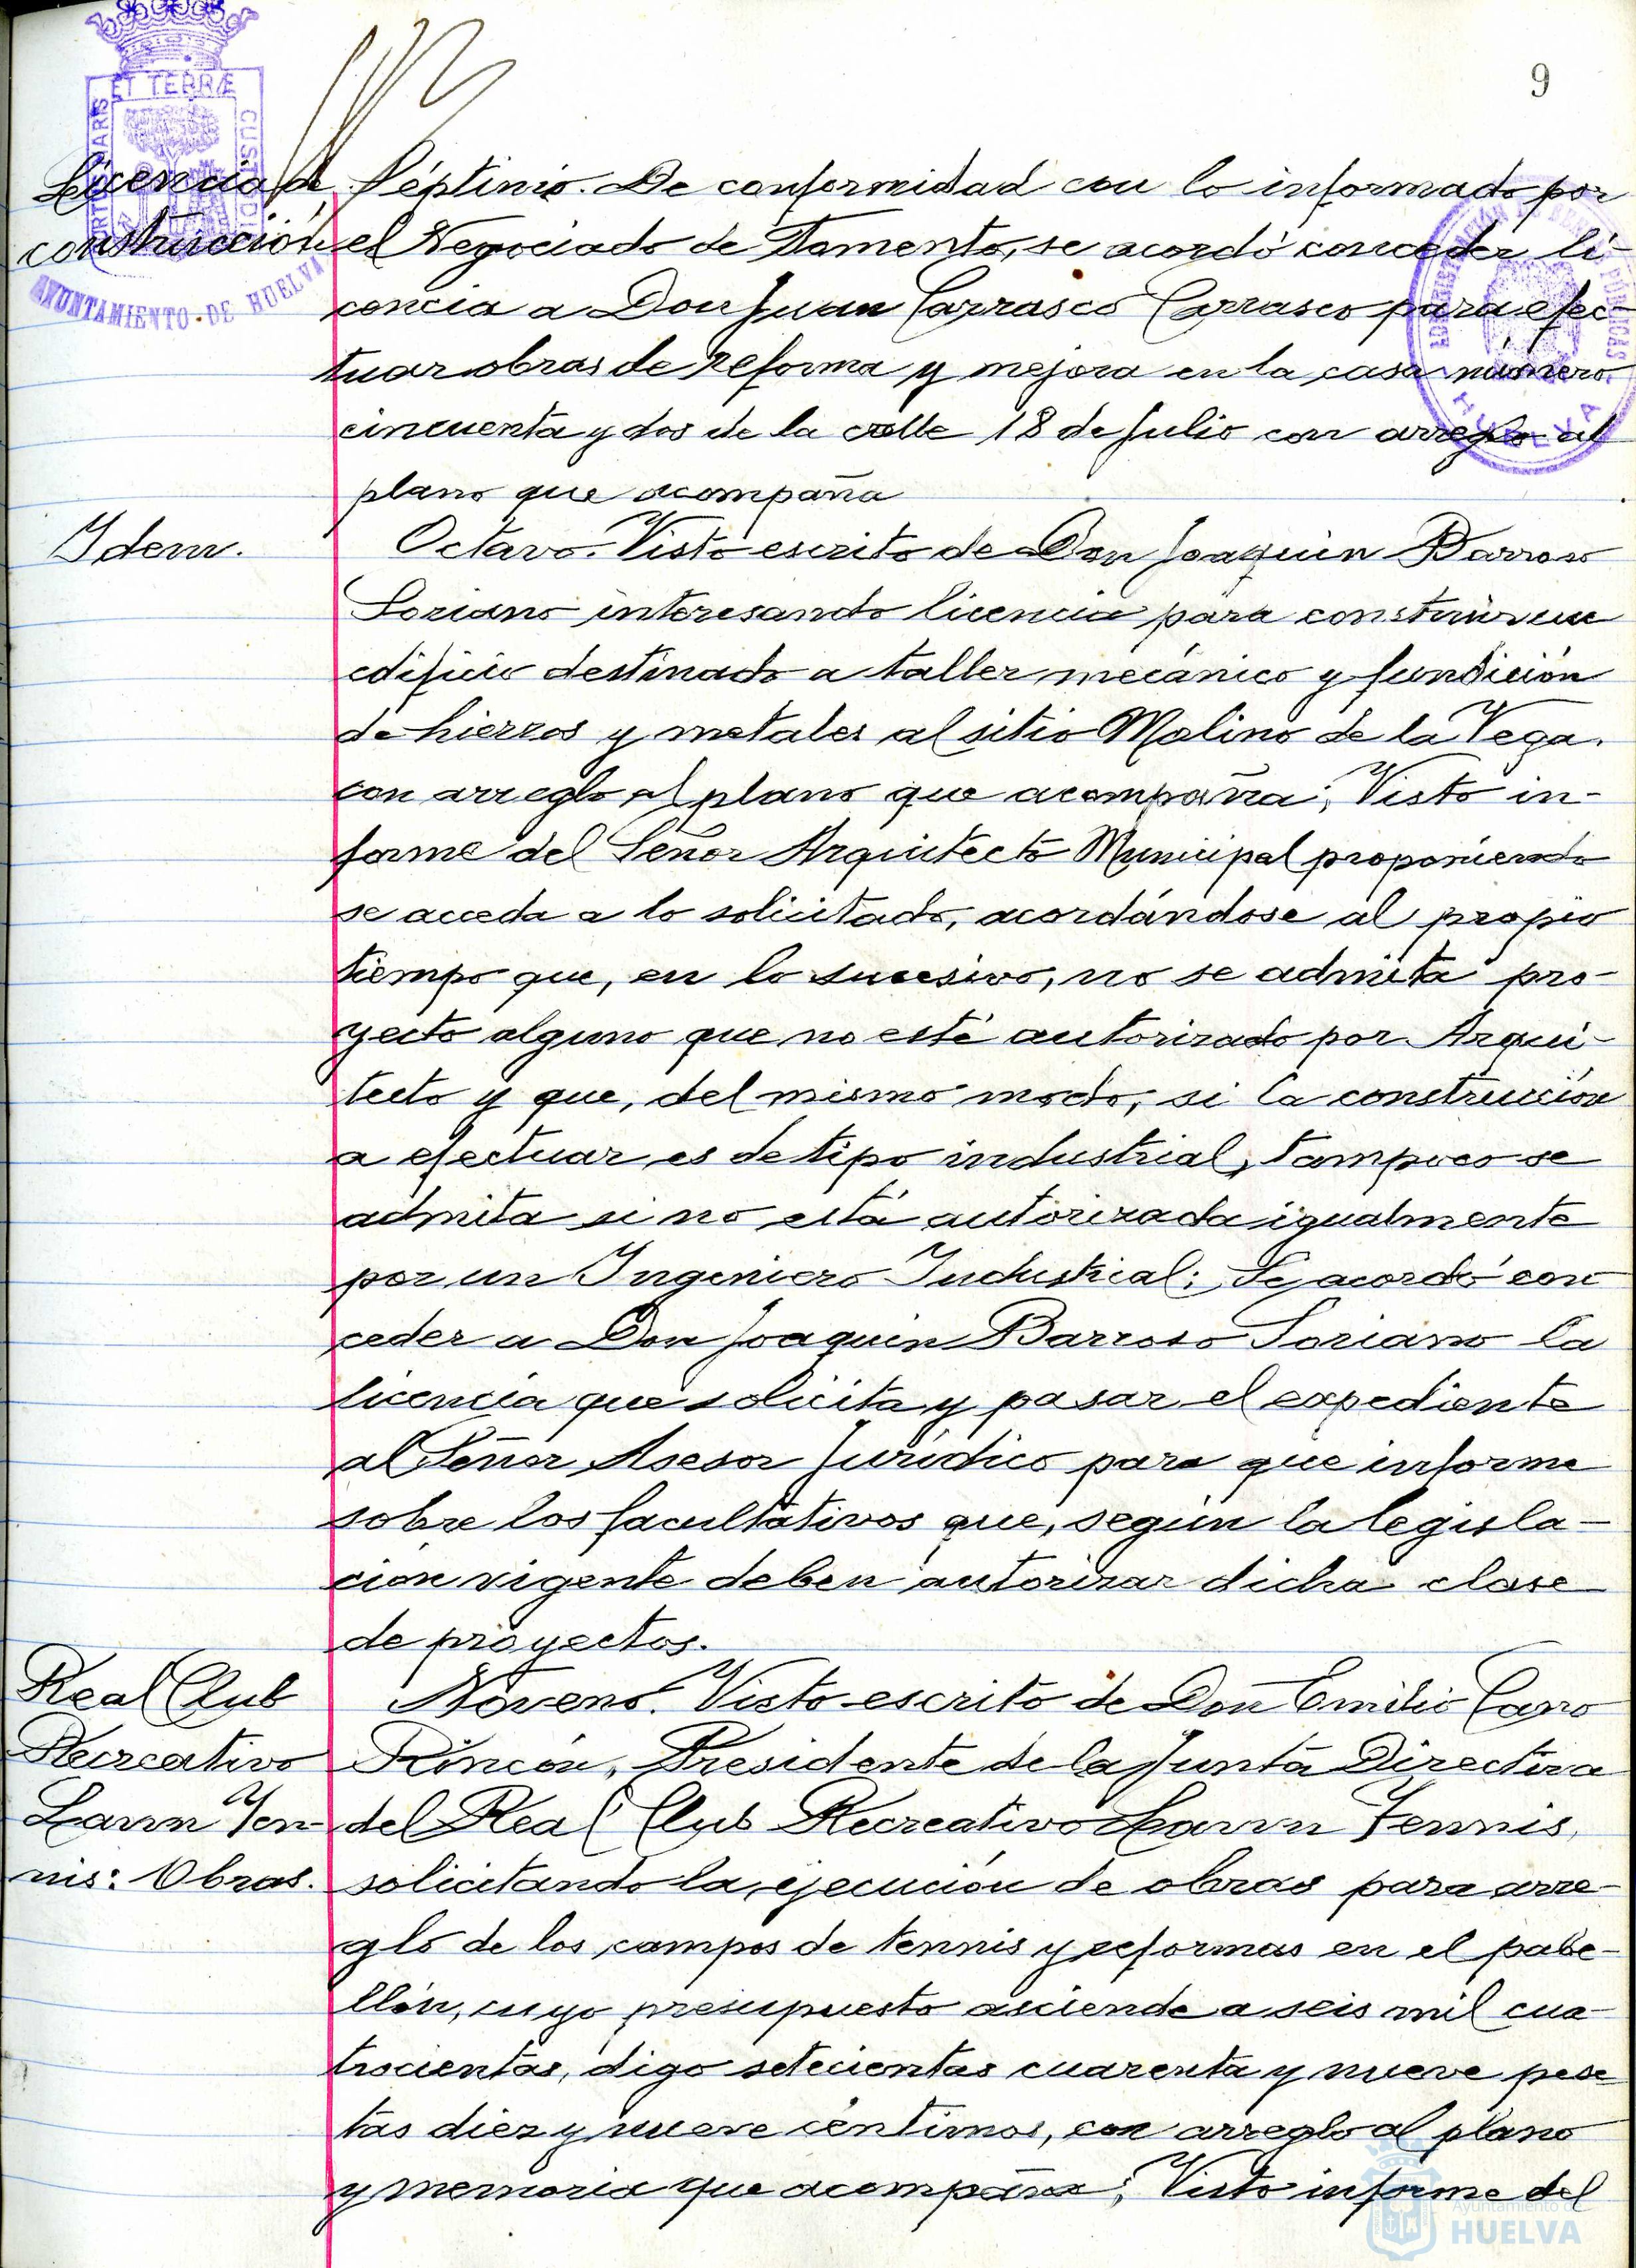 9
Licencia de
construcción
Séptimo. De conformidad con lo informado por
el Negociado de Fomento, se acordó conceder li-
cencia a Don Juan Carrasco Carrasco para efec-
tuar obras de reforma y mejora en la casa número
cincuenta y dos de la calle 18 de Julio con arreglo al
plano que acompaña
Idem.
Octavo. Visto escrito de Don Joaquín Barroso
Soriano interesando licencia para construir un
edificio destinado a taller mecánico y fundición
de hierros y metales al sitio Molino de la Vega.
con arreglo al plano que acompaña; Visto in-
forme del Señor Arquitecto Municipal proponiendo
se acceda a lo solicitado, acordándose al propio
tiempo que, en lo sucesivo, no se admita pro-
yecto alguno que no esté autorizado por Arqui-
tecto y que, del mismo modo, si la construcción
a efectuar es de tipo industrial, tampoco se
admita si no está autorizada igualmente
por un Ingeniero Industrial; Se acordó con
ceder a Don Joaquin Barroso Soriano la
licencia que solicita y pasar el expediente
al Señor Asesor Jurídico para que informe
sobre los facultativos que, según la legisla-
ción vigente deben autorizar dicha clase
de proyectos.
Real Club
Recreativo
Lawn Ten-
nis: Obras.
Noveno. Visto escrito de Don Emilio Cano
Rincón, Presidente de la Junta Directiva
del Real Club Recreativo Lawn Tennis,
solicitando la ejecución de obras para arre-
glo de los campos de tennis y reformas en el pabe-
llón, cuyo presupuesto asciende a seis mil cua-
trocientas, digo setecientas cuarenta y nueve pese
tas diez y nueve céntimos, con arreglo al plano
y memoria que acompaña; Visto informe del
PORTUS MARIS ET TERRÆ CUSTODIA
AYUNTAMIENTO · DE HUELVA
HUELVA
Ayuntamiento de
HUELVA